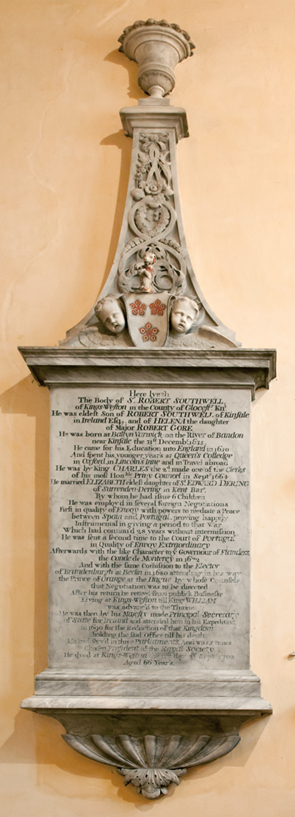 Here lyeth
The Body of Sr. ROBERT SOUTHWELL
of Kings-Weston in the County of Glocestr. Knt.
He was eldest Son of ROBERT SOUTHWELL of Kinsale
in Ireland Esqr. and of HELENA the daughter
of Major ROBERT GORE.
He was born at on the River of Bandon
near Kinsale the December
He came for his Education into England in 1650
And spent his younger years at Queen's Colledge
in Oxford in Lincolns-Inn and in Travel abroad
He was by King CHARLES the 2d. made one of the Clerks
of his most Honble. Privy Council in Septr. 1664
He married ELIZABETH eldest daughter of Sr. EDWARD DERING
of Surrenden-Dering in Kent Bart.
By whom he had issue 6 Children
He was employ'd in several Foreign Negotiations
First in quality of Envoy with powers to mediate a Peace
between Spain and Portugal, proving happily
Instrumental in giving a period to that War
Which had continued 28 years without intermission
He was sent a second time to the Court of Portugal
in Quality of Envoy Extraordinary
Afterwards with the like Character to ye Governour of Flanders
the Conde de Monterey in
And with the same Comission to the Elector
of Brandenburgh at Berlin in 1680 attending in his way
the Prince of Orange at the Hague by whose Councils
that Negotiation was to be directed
After his return he retired from publick Business
Living at Kings-Weston till King WILLIAM
was advanced to the Throne
He was then by his Majesty made Principal Secretary
of State for Ireland and attended him in his Expedition
in 1690 for the Reduction of that Kingdom
holding the said Office till his death
in three Parliaments And was 5 times
President of the Royal Society
He dyed at Kings-Weston
Aged 66 Years